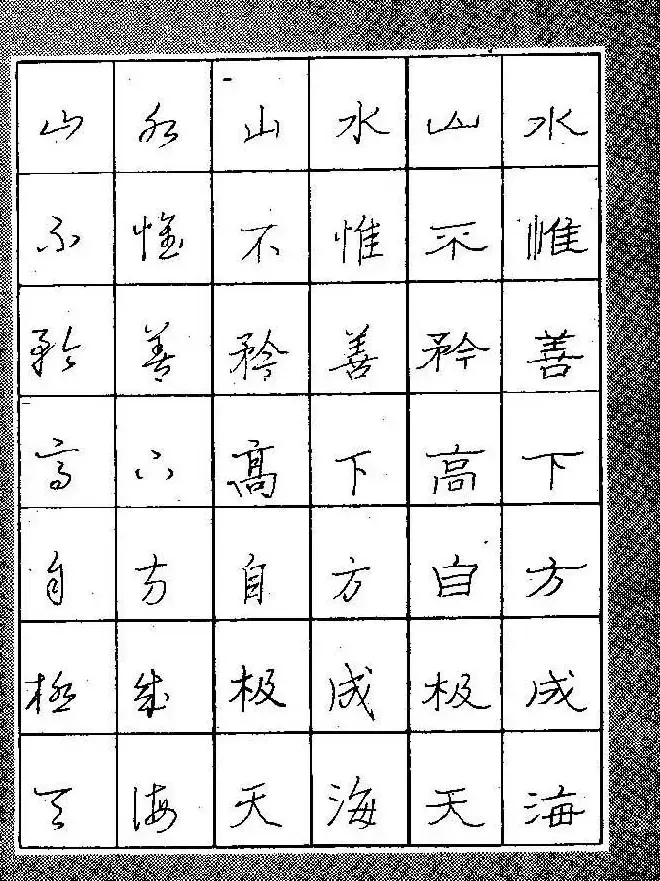 水惟善下方成海
山不矜高自极天
水惟善下方成海
山不矜髙自极天
水惟善下方成海
山不矜高自極天